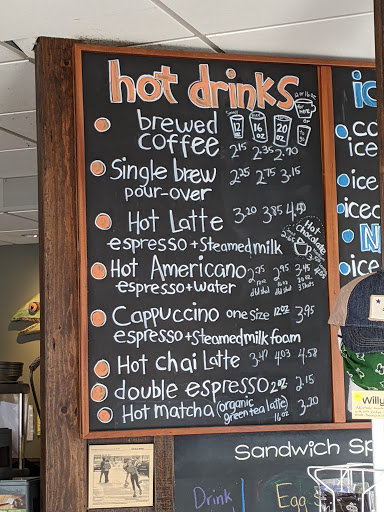 hot drinks
12 oz
16 oz
20 oz
brewed coffee 2.15 2.35 2.70
Single brew pour-over 2.25 2.75 3.15
Hot Latte 3.20 3.85 4.50
espresso + steamed milk
Hot chocolate
Hot Americano 2.95 2.95 3.45
espresso + water
Cappuccino one size 12oz 3.95
espresso + steamed milk foam
Hot chai Latte 3.47 4.03 4.58
double espresso 2oz 2.15
Hot Matcha (organic green tea latte) 16 oz 3.20
ice
ice
N
ice
Willy
Sandwich Sp
Drink
Egg